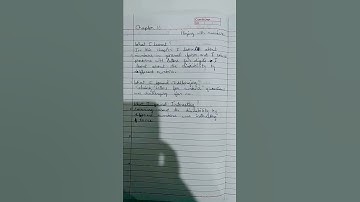 Chapter
Playing with numbers
What I learnt?
In this chapter I learnt about
numbers in general form and I
problems with letters for digits & I
learnt about the divisibility by
different numbers.
What I found challenging?
Solving letters for numbers question
was challenging for me.
What I found Interesting?
Learning about the divisibility by
different numbers was interesting